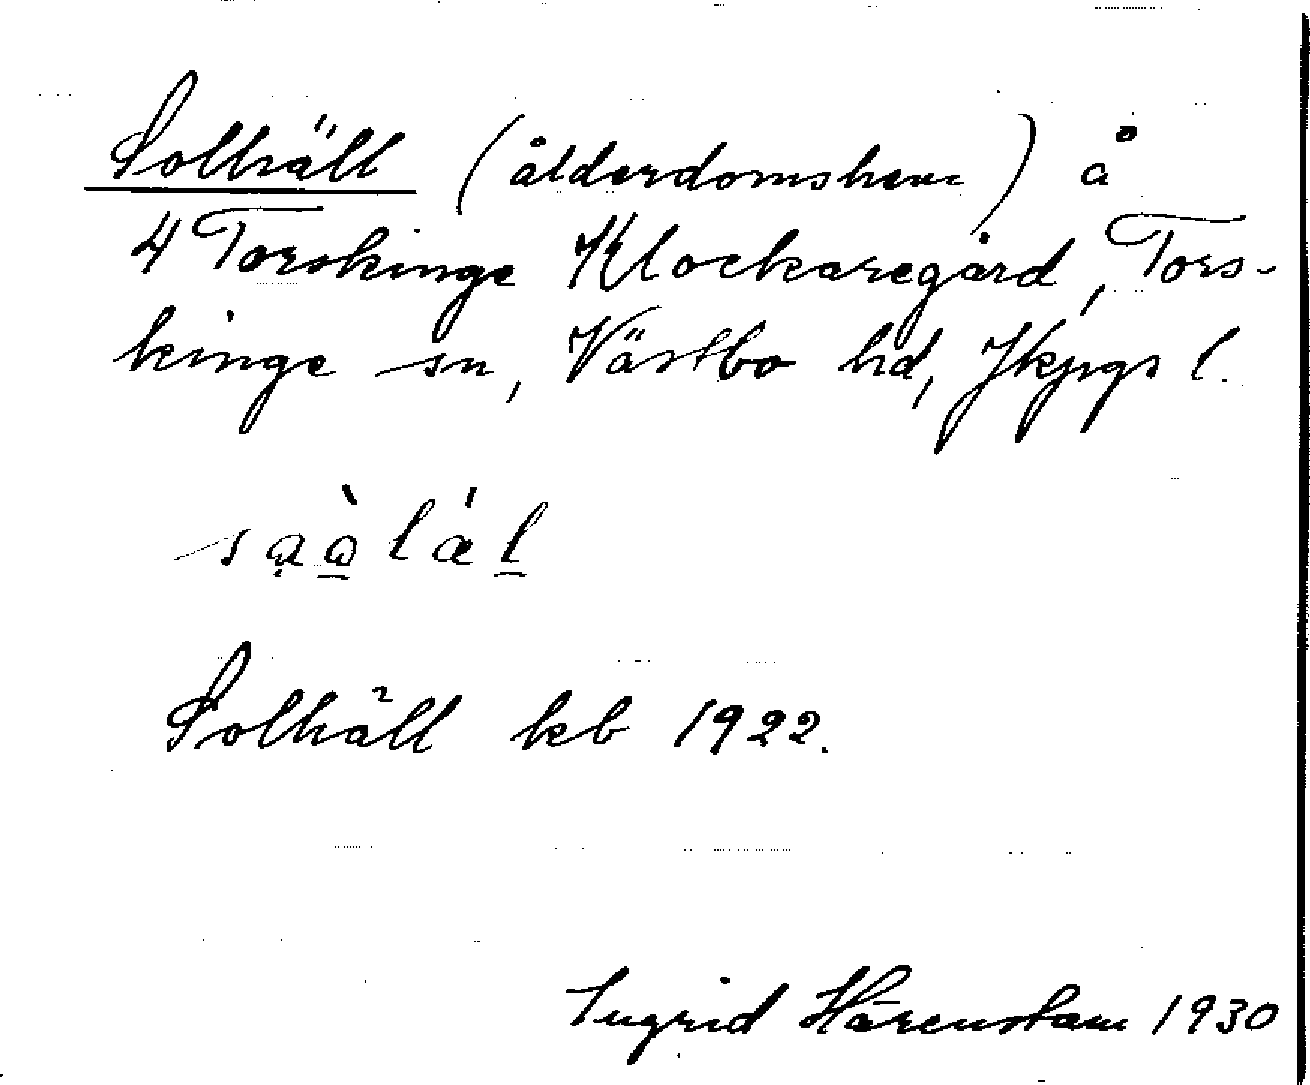 Solhäll (ålderdomshem) å
4 Torskinge Klockaregård, Tors-
kinge sn, Västbo hd, Jkpgs l.
sa̤ò̲lǽl̲
Solhäll kb 1922.
Ingrid Härenstam 1930